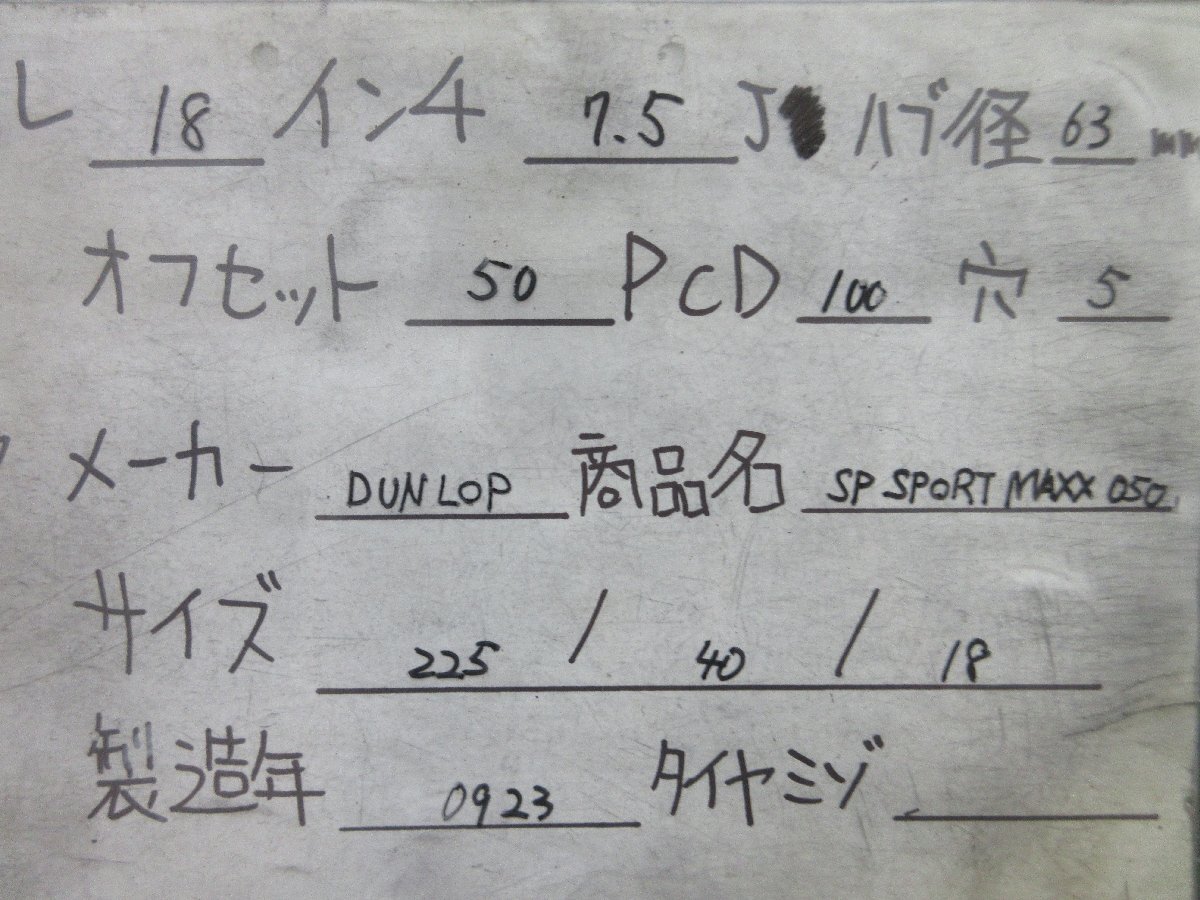 レ 18 インチ 7.5 J ハブ径 63 mm
オフセット 50 PCD 100 穴 5
メーカー DUNLOP 商品名 SP SPORT MAXX 050
サイズ 225 / 40 / 18
製造年 0923 タイヤミゾ